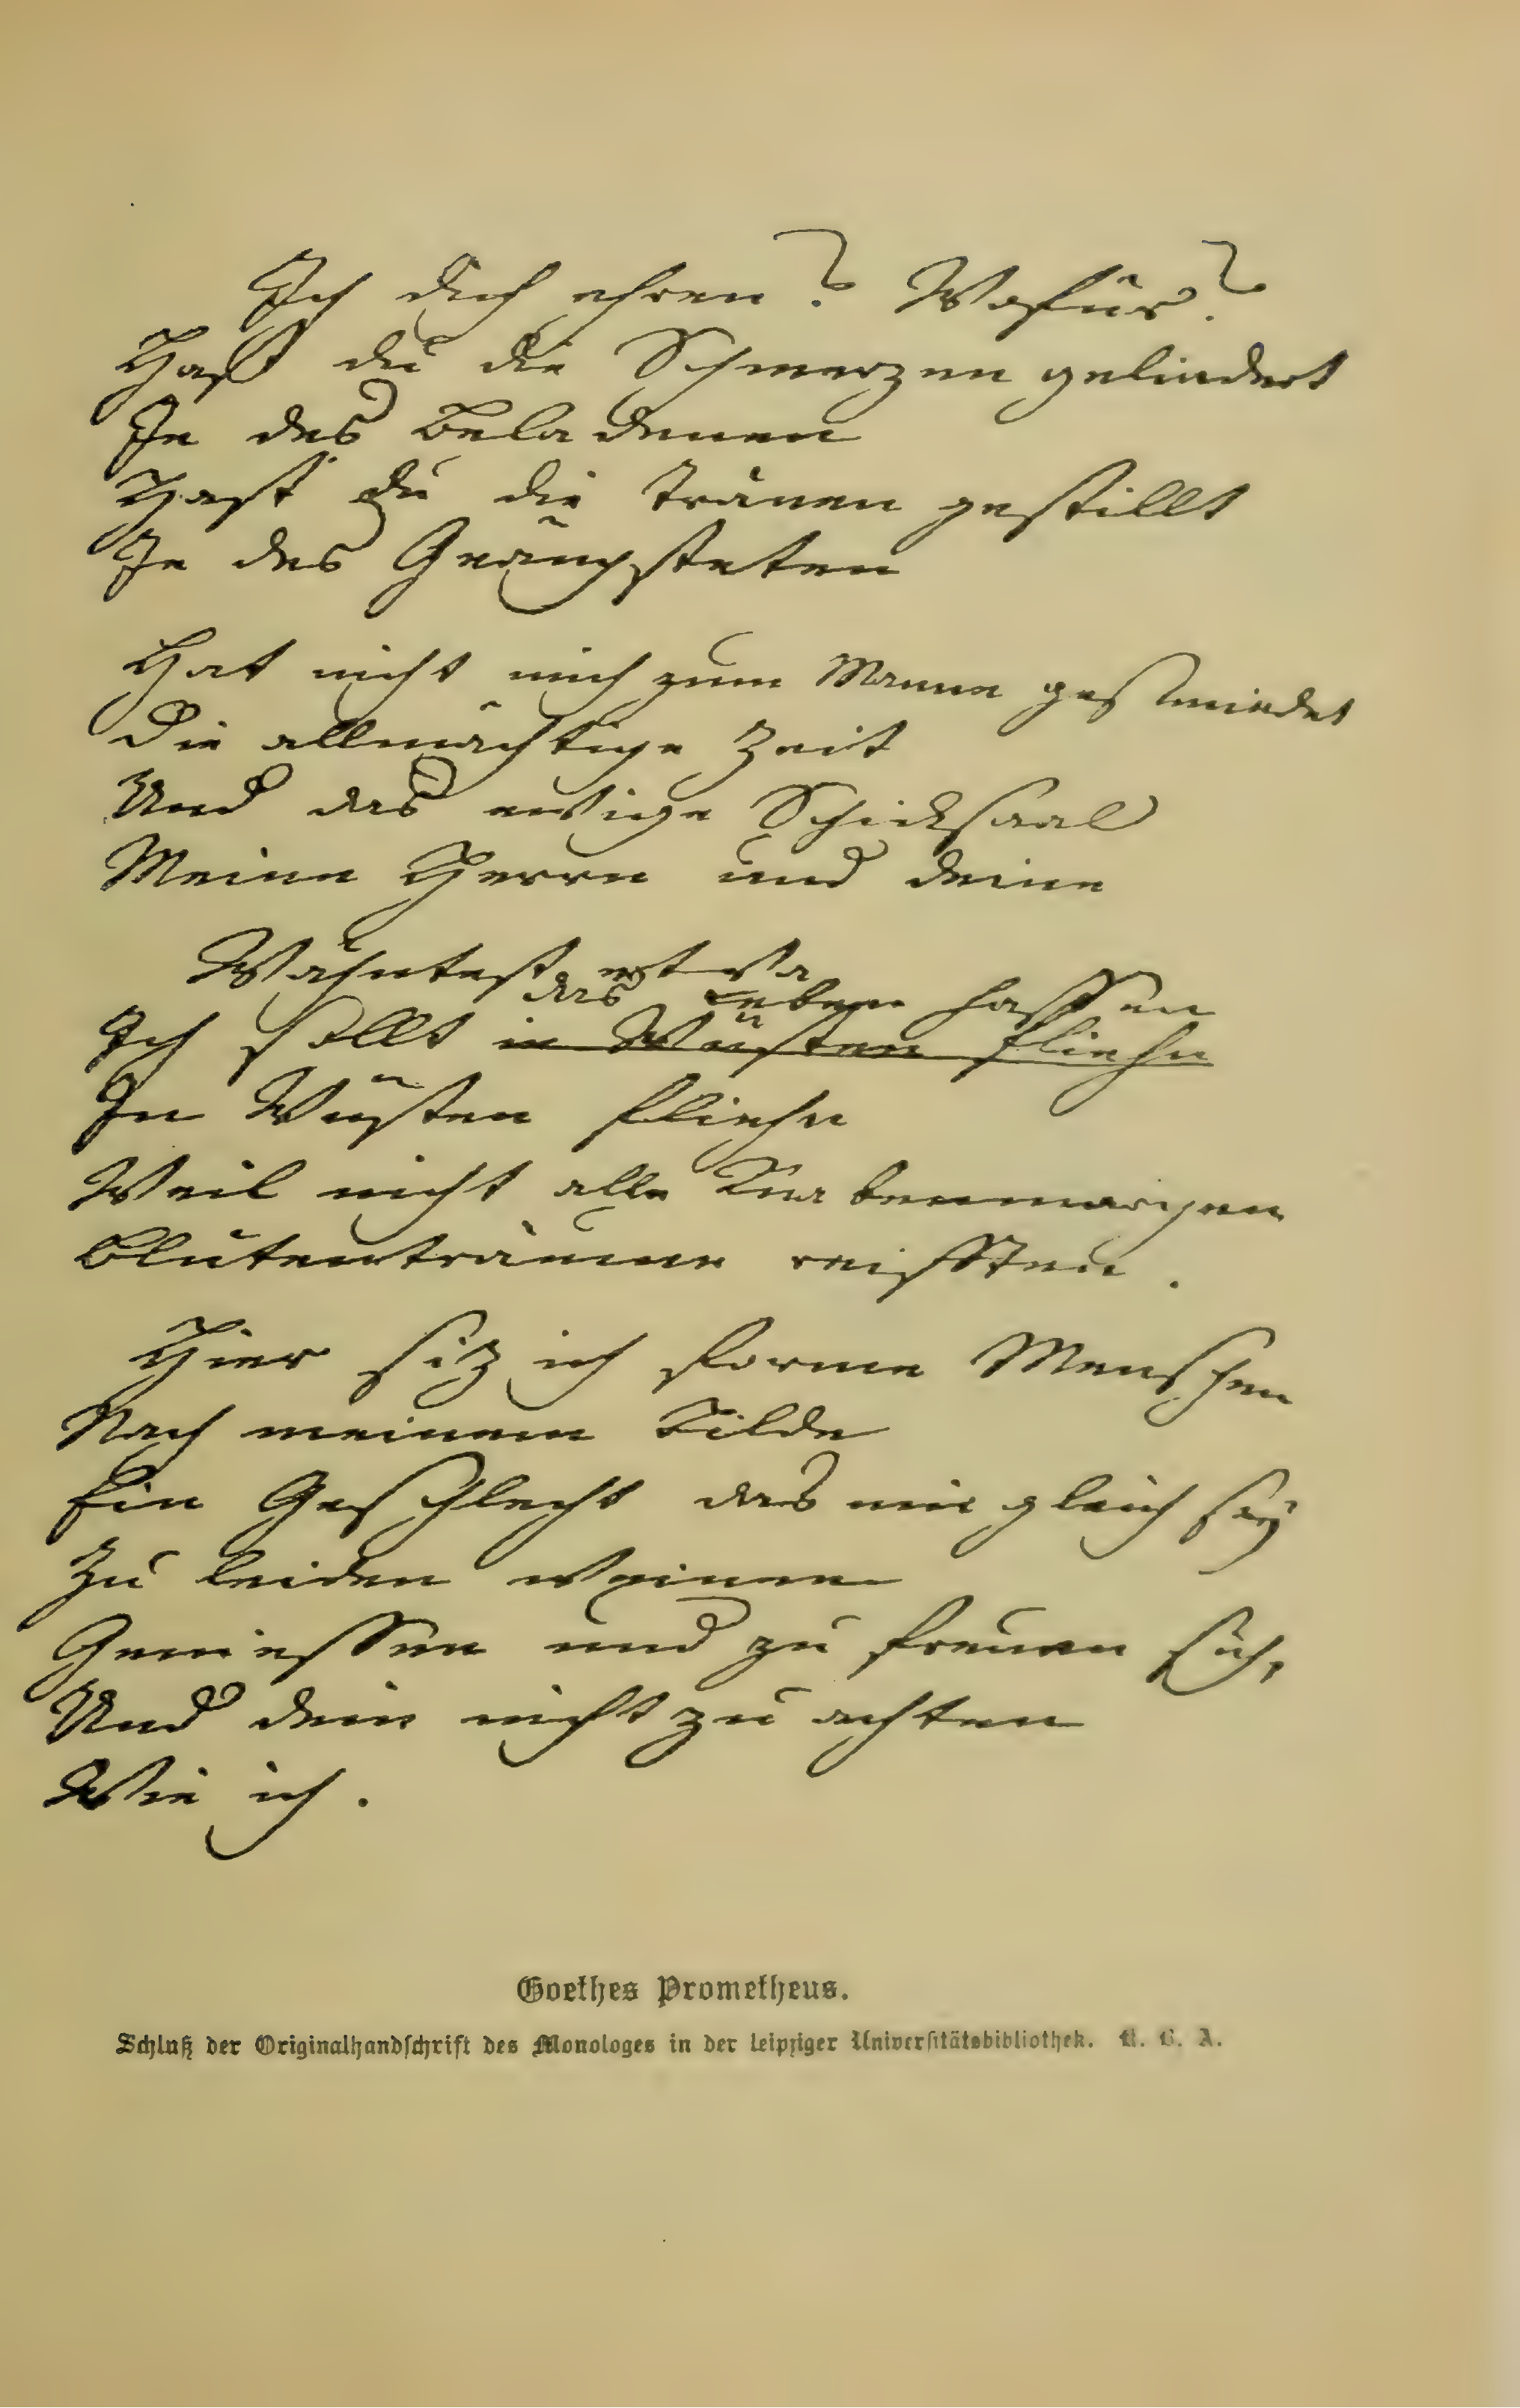 Ich dich ehren? Wofür?
Hast du die Schmerzen gelindert
Je des Beladenen
Hast du die Tränen gestillt
Je des Geängsteten
Hat nicht mich zum Manne geschmiedet
Die allmächtige Zeit
Und das ewige Schicksaal
Meine Herrn und deine
Wähntest etwa
das Leben hassen
Ich sollt in Wüsten fliehn
In Wüsten fliehn
Weil nicht alle Knabenmorgen
Blütenträume reifften.
Hier siz ich forme Menschen
Nach meinem Bilde
Ein Geschlecht das mir gleich sey
Zu leiden weinen
Geniessen und zu freuen sich,
Und dein nicht zu achten
Wie ich.
Goethes Prometheus.
Schluß der Originalhandschrift des Monologes in der Leipziger Universitätsbibliothek.